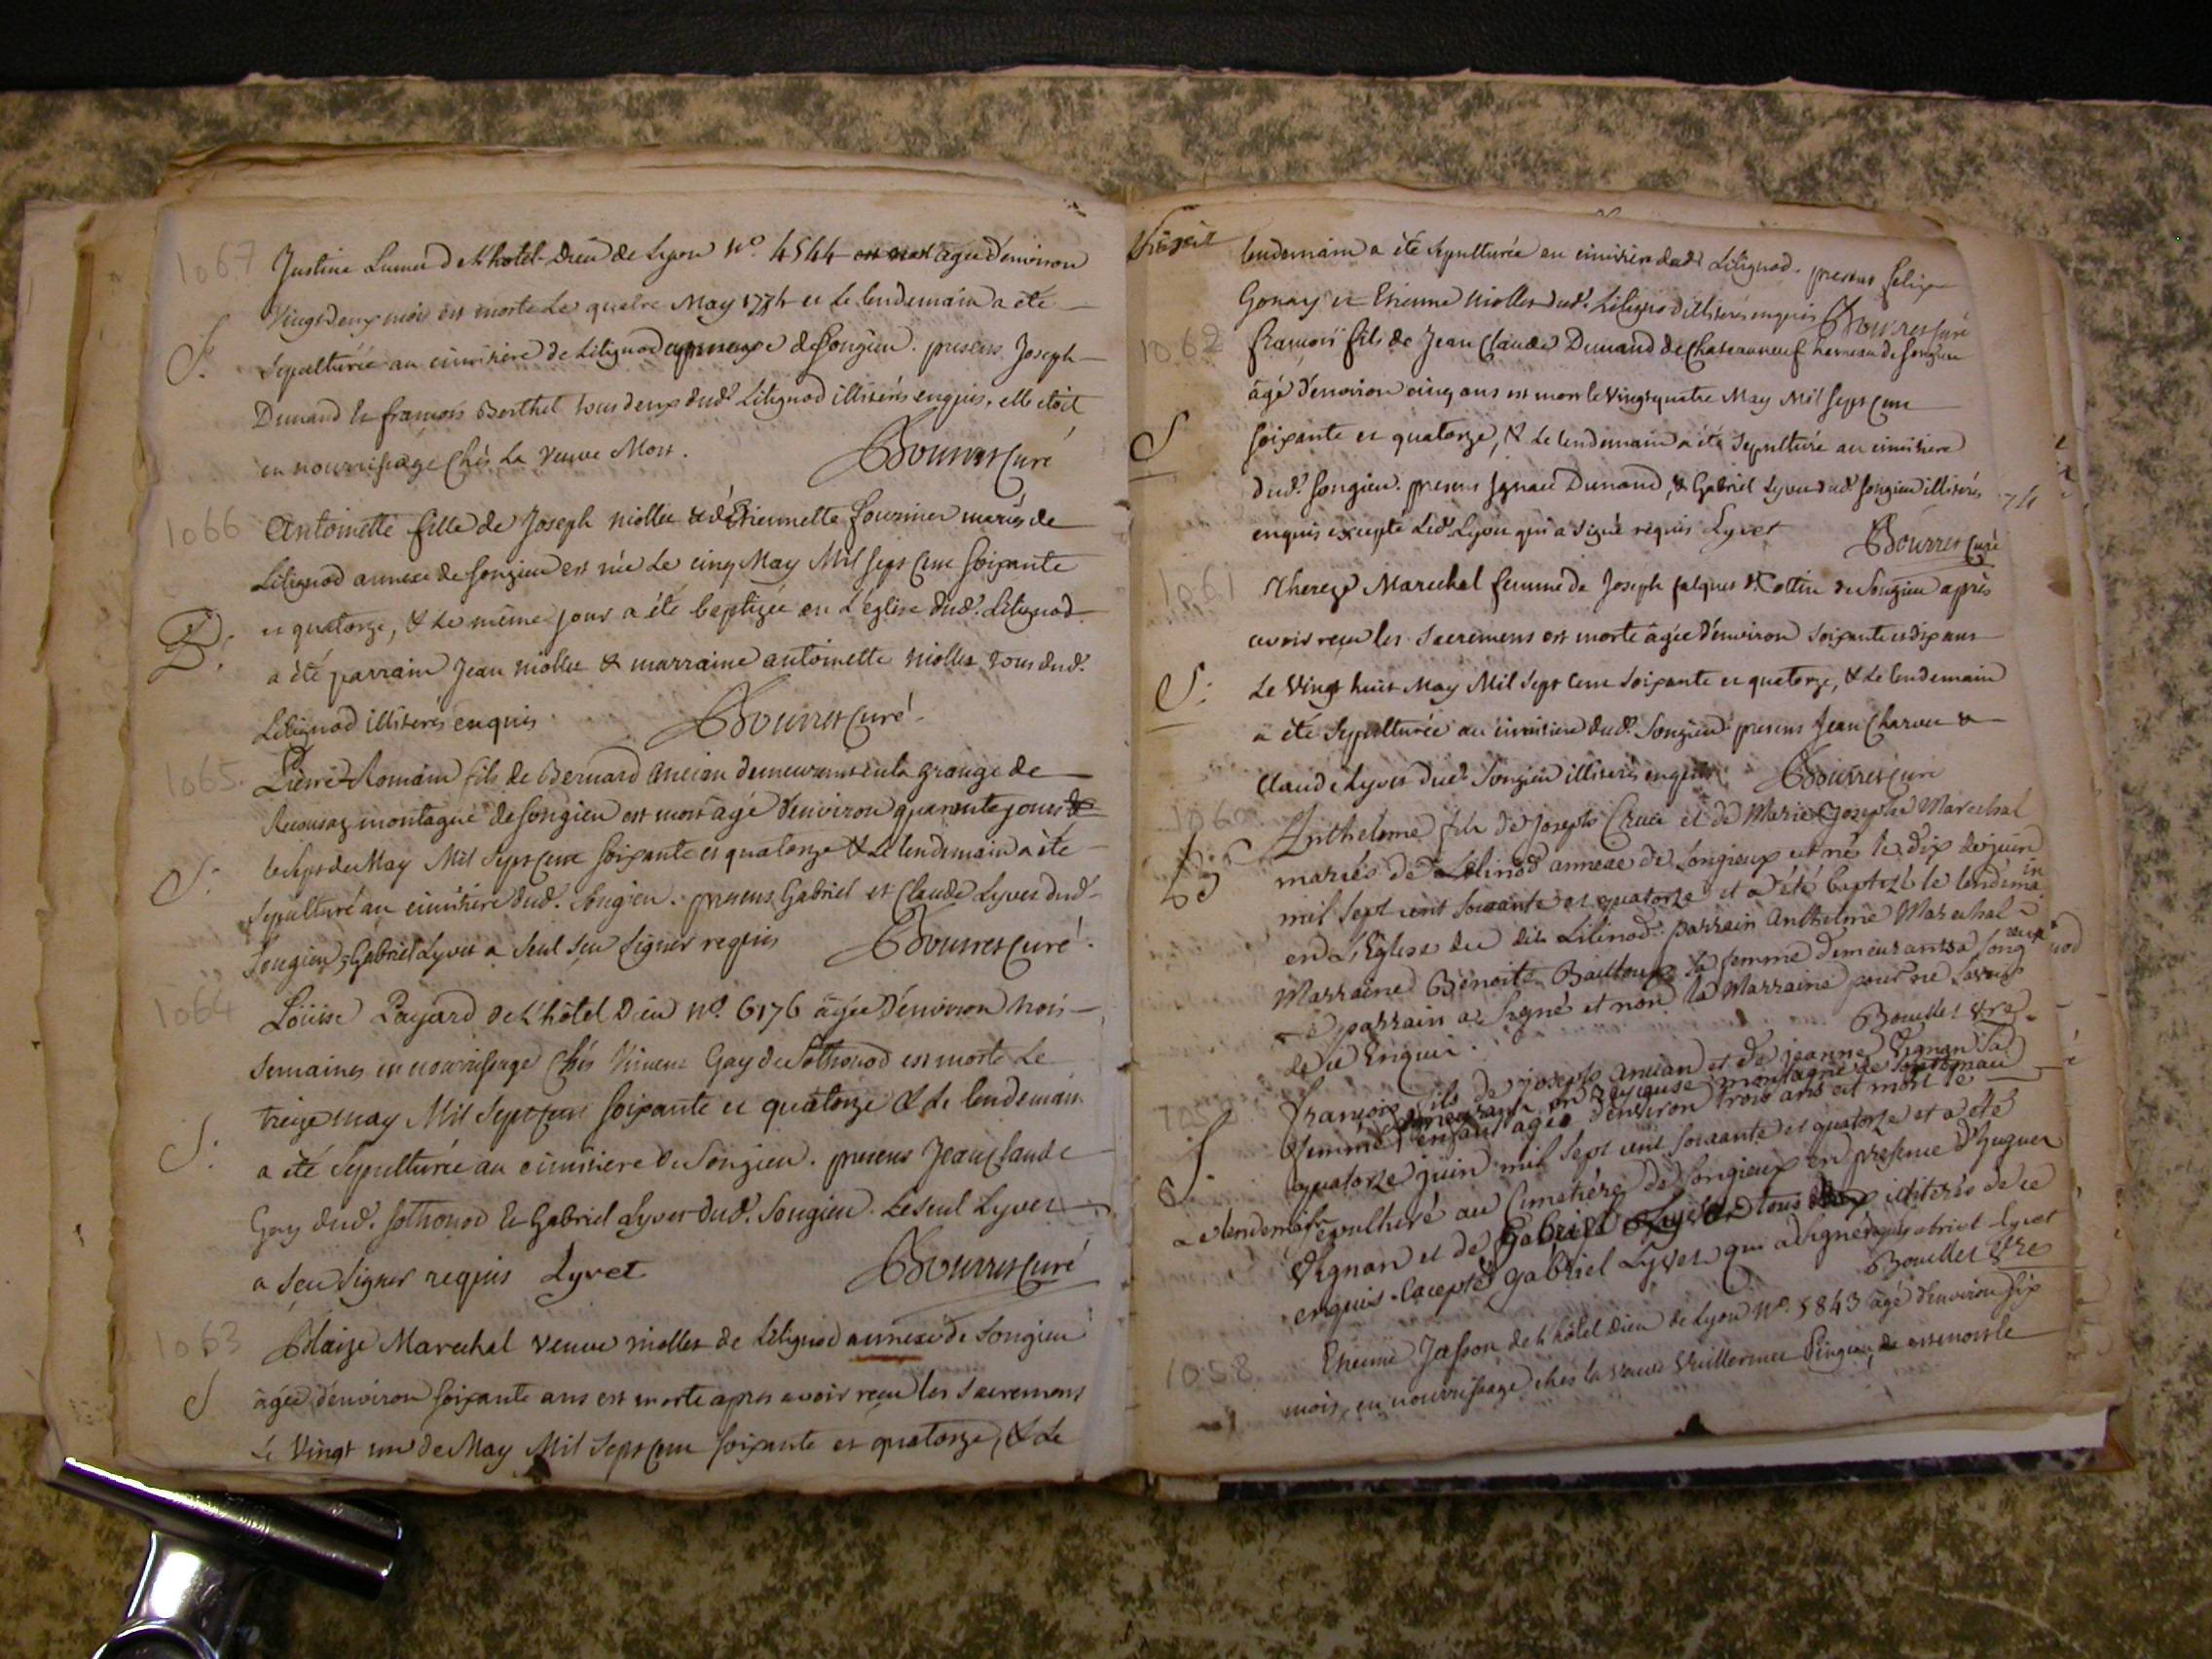 1067
Justine Lumer de l'hotel-Dieu de Lyon N.º 4544 agée d'environ
vingt deux mois est morte le quatre May 1774 et le lendemain a été
S.
sepulturée au cimitiere de Litignod annexe de Songieu. presens Joseph
Dunand et françois Berthet tous deux dud.t Litignod illiterés enquis. elle etoit
en nourrissage chés la veuve Mort. Bourret Curé
1066
Antoinette fille de Joseph niollet & d'Etiennette fournier mariés de
Litignod annexe de Songieu est née le cinq May Mil sept cent soixante
B.
et quatorze, & le même jour a été baptizée en l'église dud.t Litignod
a été parrain Jean niollet & marraine antoinette niollet tous dud.t
Litignod illiterés enquis Bourret Curé.
1065.
Pierre-Romain fils de Bernard Ancian demeurant en la grange de
montagne de Songieu est mort agé d'environ quarante jours
S.
le sept de May Mil sept cent soixante et quatorze & le lendemain a été
sepulturé au cimitiere dud. Songieu. presens Gabriel et Claude Lyvet dud.
Songieu, Gabriel Lyvet a seul seu signer requis Bourret Curé.
1064
Loüise Payard de l'hôtel Dieu N.º 6176 agée d'environ trois
semaines en nourrissage chés Vincent Gay de Sothonod est morte le
treize may Mil sept cent soixante et quatorze & le lendemain
S.
a été sepulturée au cimitiere de Songieu. presens Jean Claude
Gay dud. Sothonod & Gabriel Lyvet dud. Songieu. Le seul Lyvet
a seu signer requis Lyvet Bourret Curé
1063
Blaize Marechal veuve niollet de Litignod annexe de Songieu
S
agée d'environ soixante ans est morte apres avoir recu les sacremens
le vingt un de May Mil sept cent soixante et quatorze, & le
lendemain a été sepulturée au cimitiere dud.t Litignod. presens felix
Gonay et Etienne niollet dud. Litignod illiterés enquis Bourret Curé
1062
françois fils de Jean Claude Dunand de Chateauneuf hameau de Songieu
âgé d'environ cinq ans est mort le vingt quatre May Mil sept cent
S
soixante et quatorze, & le lendemain a été sepulturé au cimitiere
dud.t Songieu. presens Ignace Dunand, & Gabriel Lyvet dud. Songieu illiterés
enquis excepté led. Lyvet qui a signé requis Lyvet Bourret Curé
1061
Thereze Marechal femme de Joseph falquet Cottin de Songieu après
avoir reçu les sacremens est morte âgée d'environ soixante et dix ans
S.
le vingt huit May Mil sept cent soixante et quatorze, & le lendemain
a été sepulturée au cimitiere dud. Songieu. presens Jean Charvet &
Claude Lyvet dud. Songieu illiterés enquis Bourret Curé
1060
Anthelme fils de Joseph Cruci et de Marie Josephe Marechal
mariés de Litinod annexe de Songieux est né le dix de juin
mil sept cent soixante et quatorze et a été baptizé le lendemain
en l'Eglise du dit Litinod. parrain Anthelme Marechal
Marraine Benoite Baillou sa femme demeurants a Songieux
Le parrain a signé et non la Marraine pour ne savoir
de ce enquise. Bouellet Vre.
françois fils de joseph Ancian et de jeanne Vignan sa
femme demeurants en montagne de
enfant agé d'environ trois ans est mort le
S.
quatorze juin mil sept cent soixante et quatorze et a été
le lendemain sepulturé au Cimetiere de Songieux en presence d'huguet
Vignan et de Gabriel Lyvet tous illiterés de ce
enquis. Excepté Gabriel Lyvet qui a signé gabriel Lyvet
Bouellet Vre
1058
Etienne Jasson de l'hôtel Dieu de Lyon N.º 5843 agé d'environ six
mois, en nourrissage chés la veuve Vuillermet est mort le